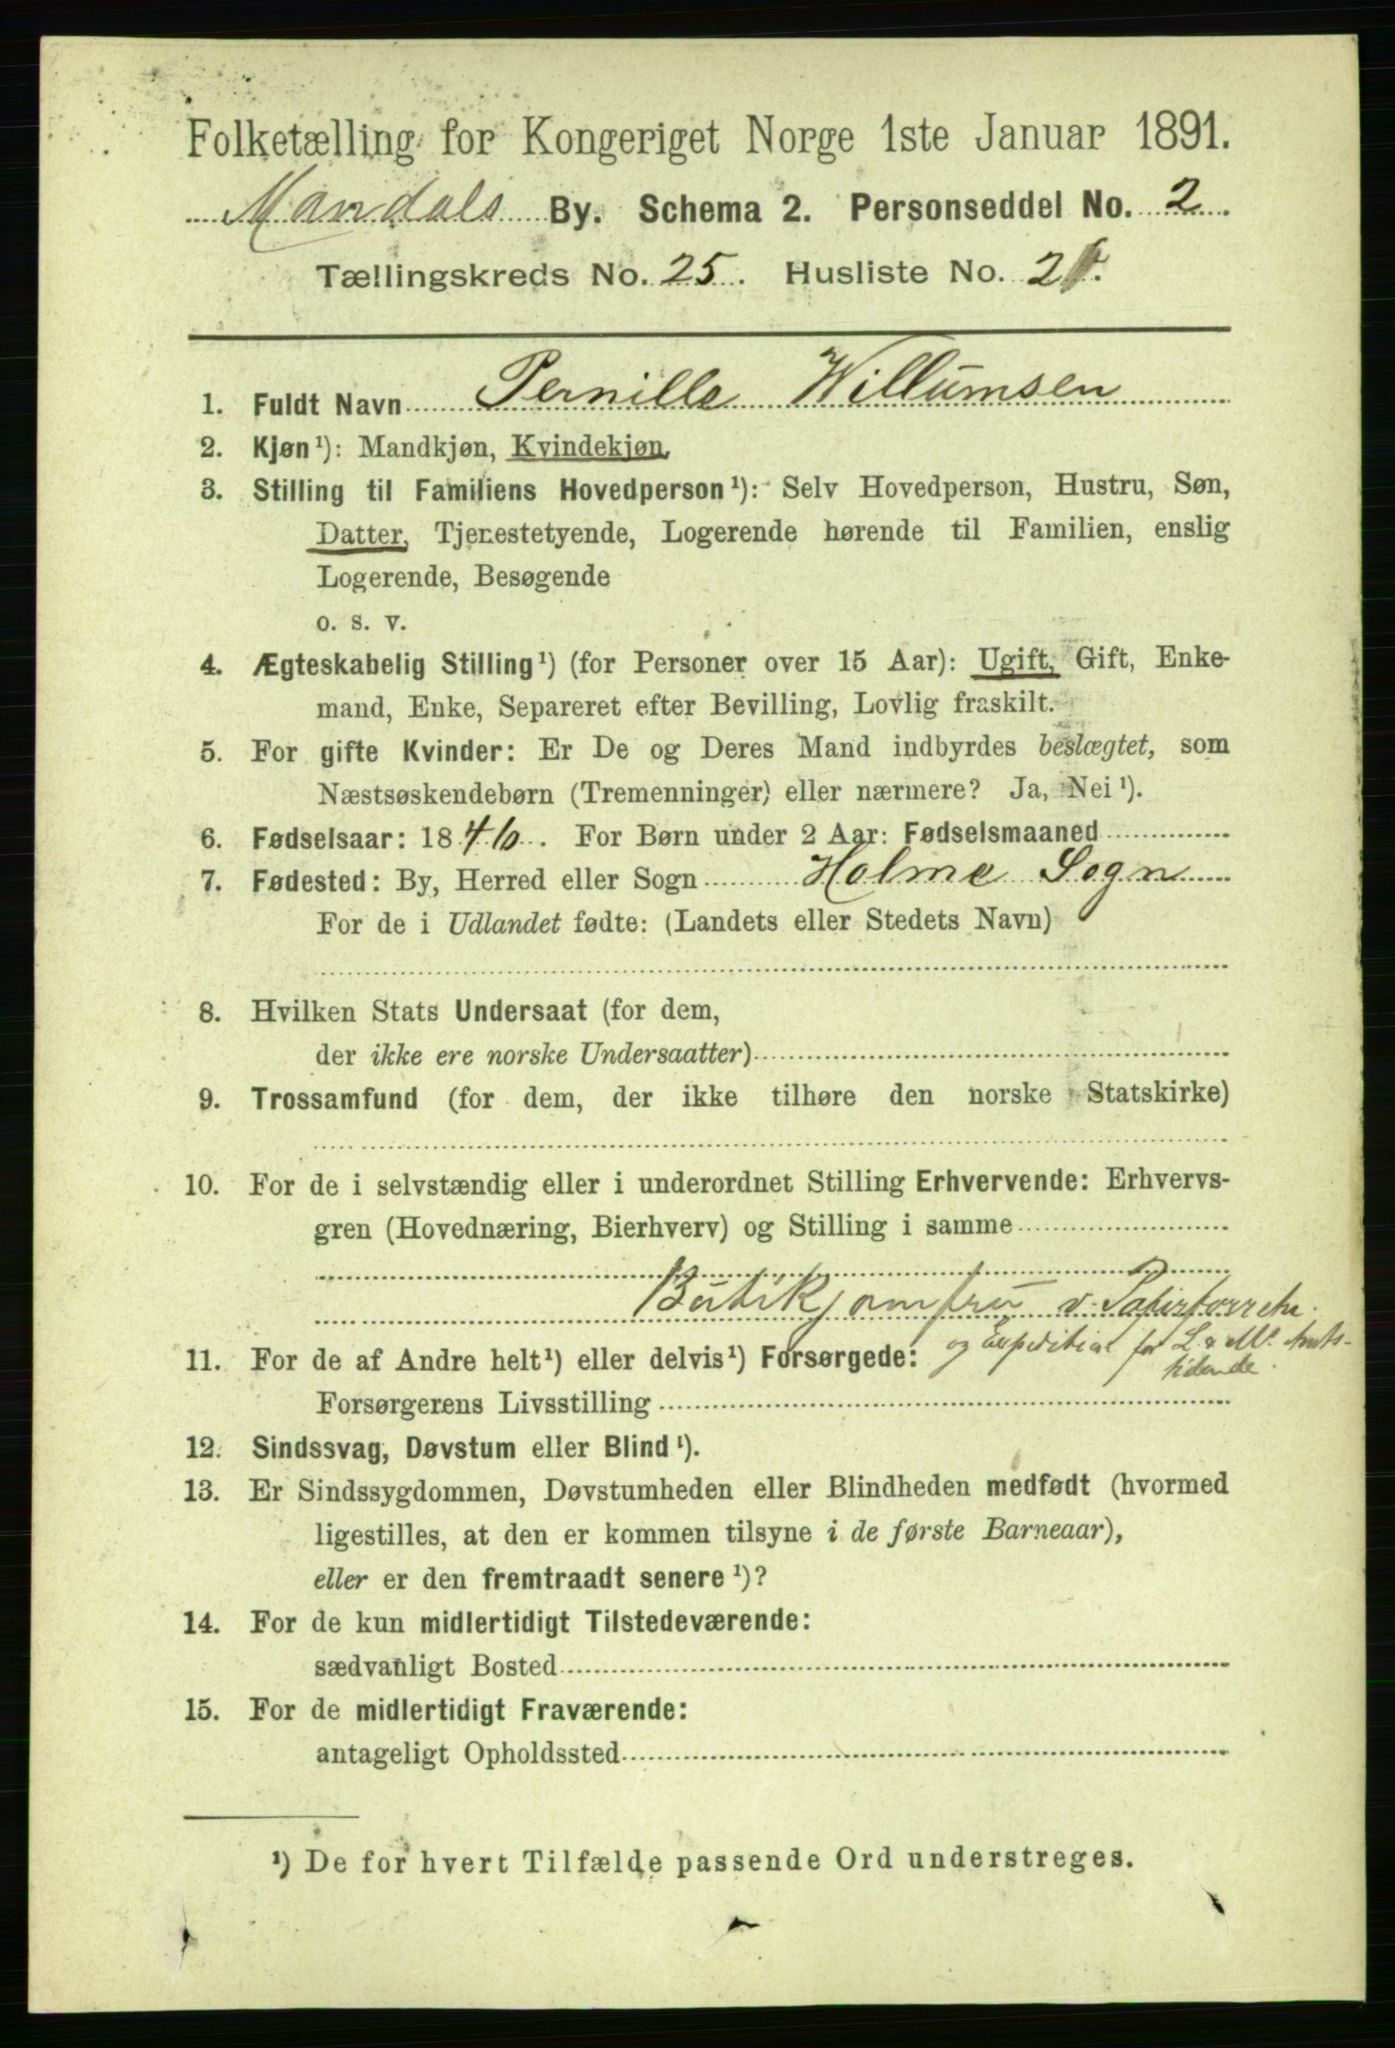 Folketælling for Kongeriget Norge 1ste Januar 1891.
Mandals By. Schema 2. Personseddel No. 2.
Tællingskreds No. 25. Husliste No. 2
1. Fuldt Navn Pernille Willumsen
2. Kjøn¹): Mandkjøn, Kvindekjøn.
3. Stilling til Familiens Hovedperson¹): Selv Hovedperson, Hustru, Søn,
Datter, Tjenestetyende, Logerende hørende til Familien, enslig
Logerende, Besøgende
o. s. v.
4. Ægteskabelig Stilling¹) (for Personer over 15 Aar): Ugift, Gift, Enke-
mand, Enke, Separeret efter Bevilling, Lovlig fraskilt.
5. For gifte Kvinder: Er De og Deres Mand indbyrdes beslægtet, som
Næstsøskendebørn (Tremenninger) eller nærmere? Ja, Nei¹).
6. Fødselsaar: 1846. For Børn under 2 Aar: Fødselsmaaned
7. Fødested: By, Herred eller Sogn Holme Sogn
For de i Udlandet fødte: (Landets eller Stedets Navn)
8. Hvilken Stats Undersaat (for dem,
der ikke ere norske Undersaatter)
9. Trossamfund (for dem, der ikke tilhøre den norske Statskirke)
10. For de i selvstændig eller i underordnet Stilling Erhvervende: Erhvervs-
gren (Hovednæring, Bierhverv) og Stilling i samme
Butikjomfru v. Papirforretn.
og Expedition for L. & M. Amts-
tidende.
11. For de af Andre helt¹) eller delvis¹) Forsørgede:
Forsørgerens Livsstilling
12. Sindssvag, Døvstum eller Blind¹).
13. Er Sindssygdommen, Døvstumheden eller Blindheden medfødt (hvormed
ligestilles, at den er kommen tilsyne i de første Barneaar),
eller er den fremtraadt senere¹)?
14. For de kun midlertidigt Tilstedeværende:
sædvanligt Bosted
15. For de midlertidigt Fraværende:
antageligt Opholdssted
¹) De for hvert Tilfælde passende Ord understreges.